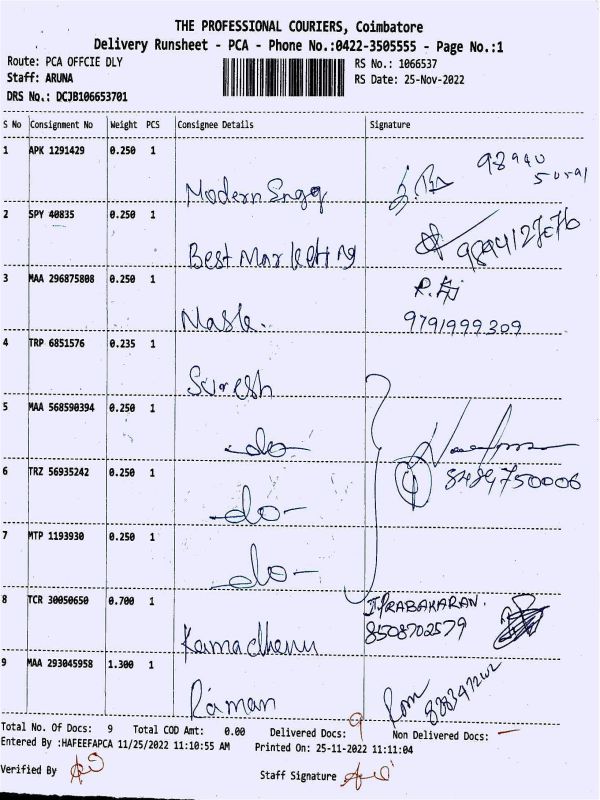 THE PROFESSIONAL COURIERS, Coimbatore
Delivery Runsheet - PCA - Phone No.:0422-3505555 - Page No.:1
Route: PCA OFFCIE DLY RS No.: 1066537
Staff: ARUNA RS Date: 25-Nov-2022
DRS No.: DCJB106653701
S No Consignment No Weight PCS Consignee Details Signature
1 APK 1291429 0.250 1
Modern Engg 98940
2 SPY 40835 0.250 1
Best Marketing
3 MAA 296875808 0.250 1
9791999309
4 TRP 6851576 0.235 1
Suresh
5 MAA 568590394 0.250 1
-do-
6 TRZ 56935242 0.250 1
-do- 8489750006
7 MTP 1193930 0.250 1
-do-
8 TCR 30050650 0.700 1 PRABAKARAN.
Kamadhenu 8508702579
9 MAA 293045958 1.300 1
Raman
Total No. Of Docs: 9 Total COD Amt: 0.00 Delivered Docs: 9 Non Delivered Docs: -
Entered By :HAFEEFAPCA 11/25/2022 11:10:55 AM Printed On: 25-11-2022 11:11:04
Verified By Staff Signature